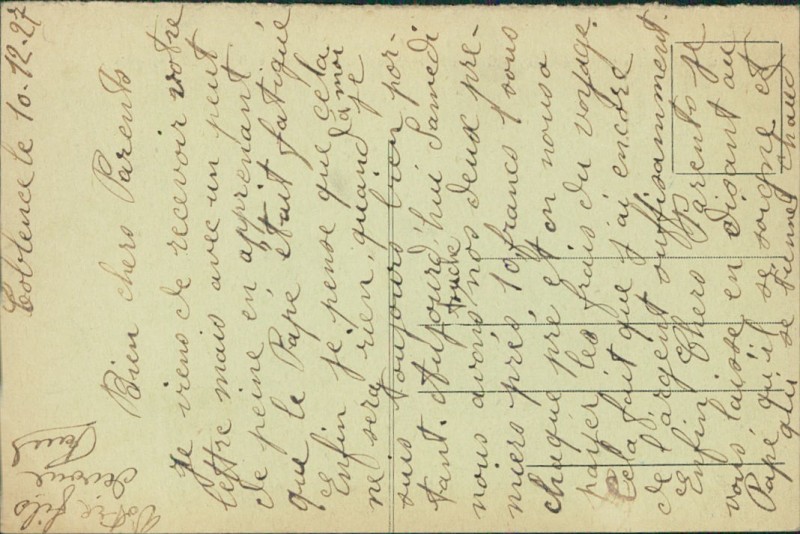 Coblence le 10.12.27
Bien chers Parents
Je viens de recevoir votre
lettre mais avec un peut
de peine en apprenant
que le Papé était fatigué
Enfin je pense que cela
ne sera rien, quand à moi je
suis toujours bien por-
tant. Aujourd'hui Samedi
nous avons touché nos deux pre-
miers prés, 10 francs sous
chaque pré et on nous a
payer les frais du voyage.
Cela fait que j'ai encore
de l'argent suffisamment.
Enfin Chers Parents je
vous laisse en disant au
Papé qu'il se soigne et
qu'il se tiennet chaud
Votre fils